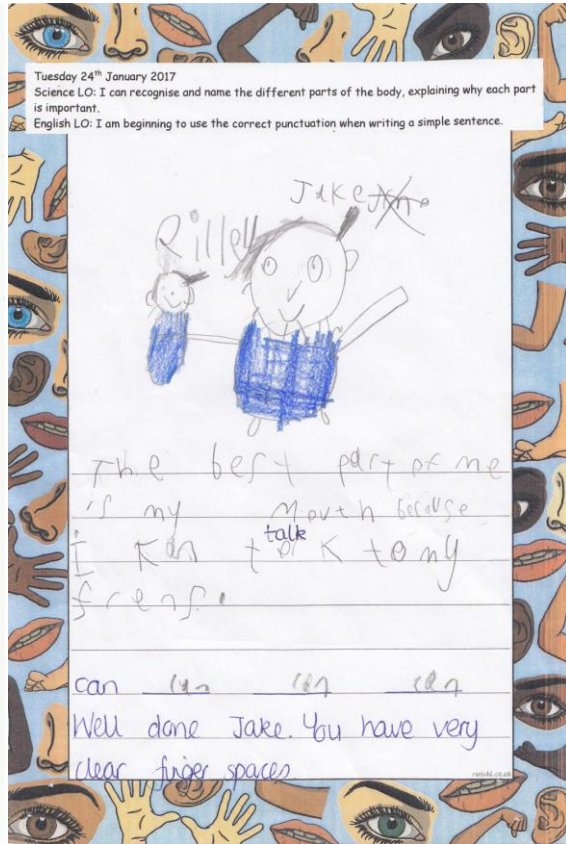 Tuesday 24th January 2017
Science LO: I can recognise and name the different parts of the body, explaining why each part
is important.
English LO: I am beginning to use the correct punctuation when writing a simple sentence.
Jake
Rilley
The best part of me
is my mouth because
talk
I kan tok to my
frens.
can can can can
Well done Jake. You have very
clear finger spaces
twinkl.co.uk